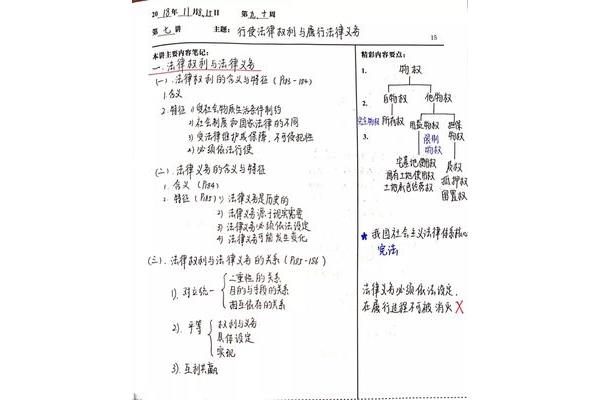 2018年11月8,15日 第九、十周
第七讲 主题: 行使法律权利与履行法律义务
15
本讲主要内容笔记:
一.法律权利与法律义务
(一).法律权利的含义与特征(P183-184)
1.含义
2.特征 1)受社会物质生活条件制约
2)社会制度和国家法律的不同
3)受法律维护或保障,不可侵犯性
4)必须依法行使
(二).法律义务的含义与特征
1.含义(P184)
2.特征(P185)1)法律义务是历史的
2)法律义务源于现实需要
3)法律义务必须依法设定
4)法律义务可能发生变化
(三).法律权利与法律义务的关系(P185-186)
1).对立统一
二重性的关系
目的与手段的关系
相互依存的关系
2).平等
权利与义务
具体设定
实现
3).互利共赢
精彩内容要点:
1. 物权
2. 自物权 他物权
完全物权 所有权 用益物权 担保
物权
3. 限制
物权
宅基地使用权
国有土地使用权
土地承包经营权
质权
抵押权
留置权
★ 我国社会主义法律体系核心
宪法
法律义务必须依法设定,
在履行过程不可被消灭 X